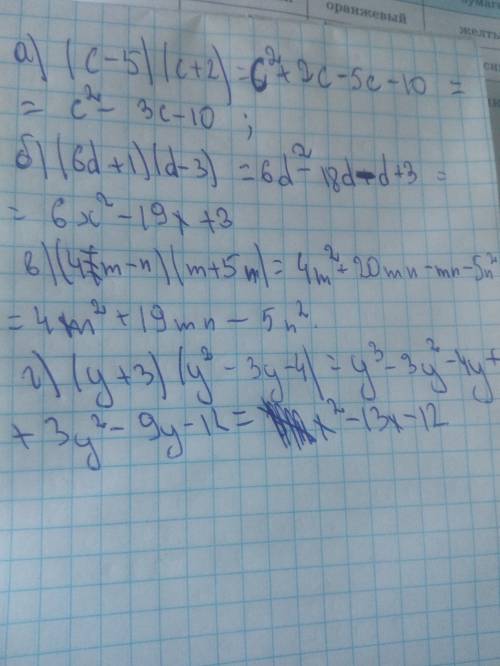 оранжевый
а) (c-5)(c+2) = c²+2c-5c-10 =
= c²- 3c-10 ;
б) (6d+1)(d-3) = 6d²- 18d-d+3 =
= 6x²-19x+3
в) (4m-n)(m+5m) = 4m²+20mn-mn-5n²
= 4m²+19mn-5n².
г) (y+3)(y²-3y-4) = y³-3y²-4y+
+ 3y²-9y-12 = x²-13x-12